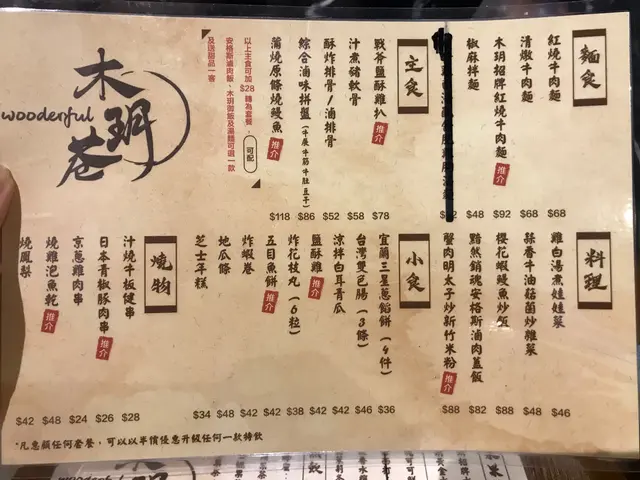 麵食
紅燒牛肉麵 $68
清燉牛肉麵 $68
木玥招牌紅燒牛肉麵 推介 $92
椒麻拌麵 $48
主食
戰斧鹽酥雞扒 推介 $78
汁煮豬軟骨 $58
酥炸排骨/滷排骨 $52
綜合滷味拼盤(牛展牛筋牛肚豆干) $86
蒲燒原條燒鰻魚 推介 $118
以上主食可加$28轉為套餐,可配
安格斯滷肉飯、木玥御飯及湯麵可選一款
及送甜品一客
木玥巷
wooderful
料理
雞白湯煮娃娃菜 $46
蒜香牛油菇菌炒雜菜 $48
櫻花蝦鰻魚炒飯 $88
黯然銷魂安格斯滷肉蓋飯 $82
蟹肉明太子炒新竹米粉 推介 $88
小食
宜蘭三星蔥餡餅(4件) $36
台灣雙色腸(3條) $46
涼拌白耳青瓜 $42
鹽酥雞 推介 $42
炸花枝丸(6粒) $38
五目魚餅 推介 $42
炸蝦卷 $42
地瓜條 $48
芝士年糕 $34
燒物
汁燒牛板健串 $28
日本青椒豚肉串 推介 $26
京蔥雞肉串 $24
燒雞泡魚乾 推介 $48
燒鳳梨 $42
*凡惠顧任何套餐,可以以半價優惠升級任何一款特飲